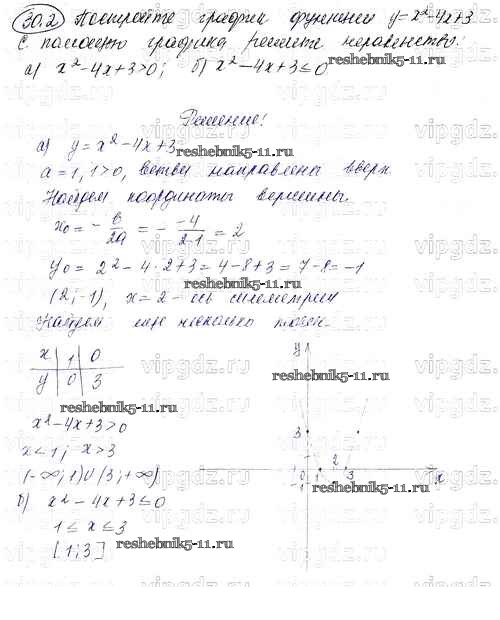 30.2 Постройте график функции y=x²-4x+3
С помощью графика решите неравенство:
а) x²-4x+3>0; б) x²-4x+3≤0
reshebnik5-11.ru
Решение:
а) y=x²-4x+3
reshebnik5-11.ru
a=1, 1>0, ветви направлены вверх
Найдем координаты вершины.
x₀ = - в/2a = - -4/2·1 = 2
y₀ = 2²-4·2+3=4-8+3=7-8=-1
reshebnik5-11.ru
(2;-1), x=2 - ось симметрии
Найдем еще несколько точек.
x | 1 | 0
y | 0 | 3
reshebnik5-11.ru
reshebnik5-11.ru
x²-4x+3>0
x<1; x>3
(-∞;1)∪(3;+∞)
б) x²-4x+3≤0
1≤x≤3
[1;3]
reshebnik5-11.ru
y
3
2
1
0
1
3
x
-1
vipgdz.ru